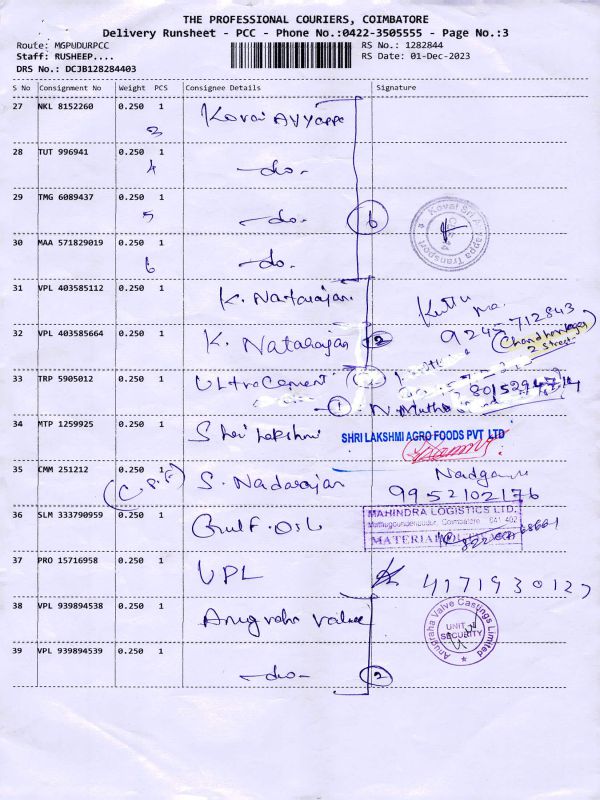 THE PROFESSIONAL COURIERS, COIMBATORE
Delivery Runsheet - PCC - Phone No.:0422-3505555 - Page No.:3
Route: MGPUDURPCC RS No.: 1282844
Staff: RUSHEEP.... RS Date: 01-Dec-2023
DRS No.: DCJB128284403
S No Consignment No Weight PCS Consignee Details Signature
27 NKL 8152260 0.250 1 Kovai Ayyappa
3
28 TUT 996941 0.250 1 -do-
4
29 TMG 6089437 0.250 1 -do- 6
5
Kovai Sri Ayyappa Transport
30 MAA 571829019 0.250 1 -do-
6
31 VPL 403585112 0.250 1 K. Natarajan
32 VPL 403585664 0.250 1 K. Natarajan 2
Chandhranagar
2 street
33 TRP 5905012 0.250 1 Ultracement
1 N. Muthu
34 MTP 1259925 0.250 1 Shri Lakshmi
SHRI LAKSHMI AGRO FOODS PVT LTD
35 CMM 251212 0.250 1 S. Nadarajan
9952102176
36 SLM 333790959 0.250 1 Gulf. Oil
MAHINDRA LOGISTICS LTD.
Coimbatore 641 402
MATERIAL
37 PRO 15716958 0.250 1 UPL
38 VPL 939894538 0.250 1 Anugraha Valve
Anugraha Valve Castings Limited
UNIT
SECURITY
39 VPL 939894539 0.250 1 -do- 2